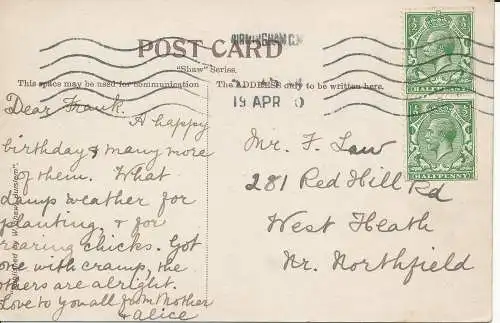 POST CARD
"Shaw" Series.
This space may be used for communication
The ADDRESS only to be written here.
BIRMINGHAM
19 APR 0
HALFPENNY
HALFPENNY
Dear Frank.
A happy
birthday & many more
of them. What
damp weather for
planting, & for
rearing chicks. Got
one with cramp, the
others are alright.
Love to you all from Mother
& Alice
Mr. F. Law
281 Red Hill Rd
West Heath
Nr. Northfield